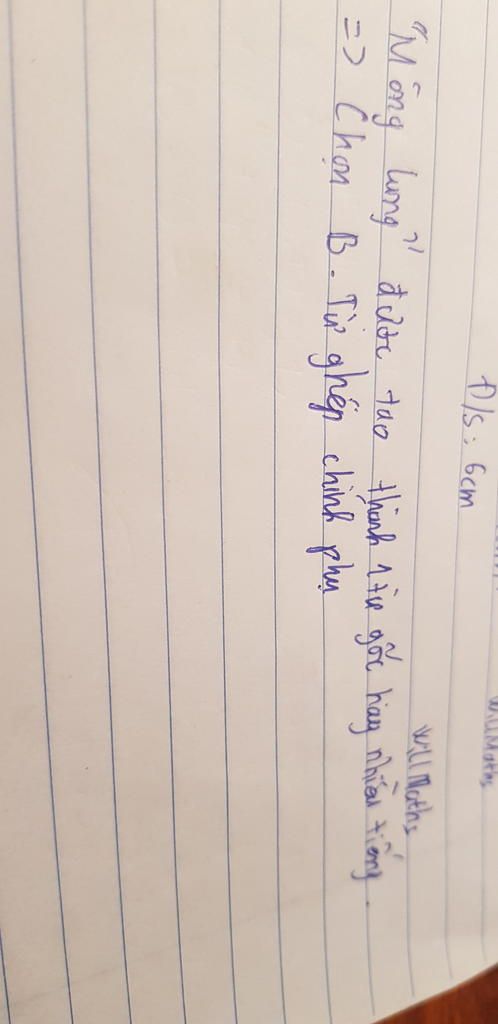 Đ/s: 6cm
Will Maths
Will Maths
"Mông lung" được tạo thành 1 từ gốc hay nhiều tiếng.
=> Chọn B. Từ ghép chính phụ